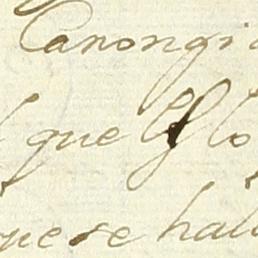 Canongi
que lo
que se hal